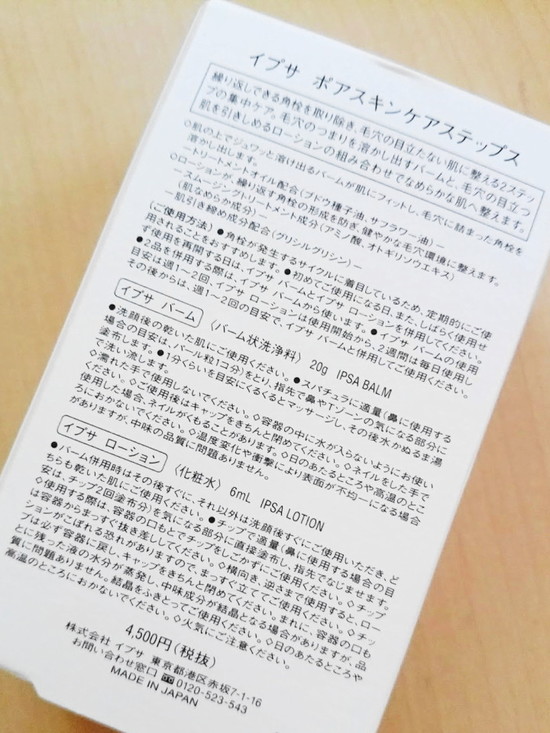 イプサ ポアスキンケアステップス
繰り返しできる角栓を取り除き、毛穴の目立たない肌に整える2ステッ
プの集中ケア。毛穴のつまりを溶かし出すバームと、毛穴の目立つ
肌を引きしめるローションの組み合わせでなめらかな肌へ整えます。
◇肌の上でジュワッと溶け出るバームが肌にフィットし、毛穴に詰まった角栓を
溶かし出します。
ートリートメントオイル配合(ブドウ種子油、サフラワー油)ー
◇ローションが、繰り返す角栓の形成を防ぎ、健やかな毛穴環境に整えます。
ースムージングトリートメント成分(アミノ酸、オトギリソウエキス)
(肌なめらか成分)ー
ー肌引き締め成分配合(グリシルグリシン)ー
〈ご使用方法〉●角栓が発生するサイクルに着目しているため、定期的にご使
用されることをおすすめします。●初めてご使用になる日、また、しばらく使用せ
ず使用を再開する日は、イプサ バームとイプサ ローションを併用してください。
●2品を併用する際は、イプサ バームから使います。●イプサ バームの使用
目安は週1〜2回、イプサ ローションは使用開始から、2週間は毎日使用し
その後からは、週1〜2回の目安で、イプサ バームと併用してご使用ください。
イプサ バーム 〈バーム状洗浄料〉 20g IPSA BALM
●洗顔後の乾いた肌にご使用ください。●スパチュラに適量(鼻に使用する
場合の目安は、パール粒1コ分)をとり、指先で鼻やTゾーンの気になる部分に
塗布します。●1分くらいを目安にくるくるとマッサージし、その後水かぬるま湯
で洗い流します。
◇濡れた手で使用しないでください。◇容器の中に水が入らないようにお使い
ください。◇ご使用後はキャップをきちんと閉めてください。◇ネイルをした手で
使用した場合、ネイルがくもることがあります。◇日のあたるところや高温のとこ
ろにおかないでください。◇温度変化や衝撃により表面が不均一になる場合
がありますが、中味の品質に問題ありません。
イプサ ローション 〈化粧水〉 6mL IPSA LOTION
●バーム併用時はその後すぐに、それ以外は洗顔後すぐにご使用いただき、ど
ちらも乾いた肌にご使用ください。●チップで適量(鼻に使用する場合の目
安は、チップ2回塗布分)を気になる部分に直接塗布し、指先でなじませます。
◇使用する際は、容器の口もとでチップをしごかずにご使用ください。◇チップ
は容器からまっすぐ抜き差ししてください。◇横向き、逆さまで使用すると、ロー
ションがこぼれる恐れがありますので、まっすぐ立ててご使用ください。◇チッ
プは必ず容器に戻し、キャップをきちんと閉めてください。まれに、容器の口も
とに残った液の水分が蒸発し、中味成分が結晶となる場合がありますが、品
質に問題ありません。結晶をふきとってご使用ください。◇日のあたるところや
高温のところにおかないでください。◇火気にご注意ください。
4,500円(税抜)
株式会社 イプサ 東京都港区赤坂7-1-16
お問い合わせ窓口 0120-523-543
MADE IN JAPAN